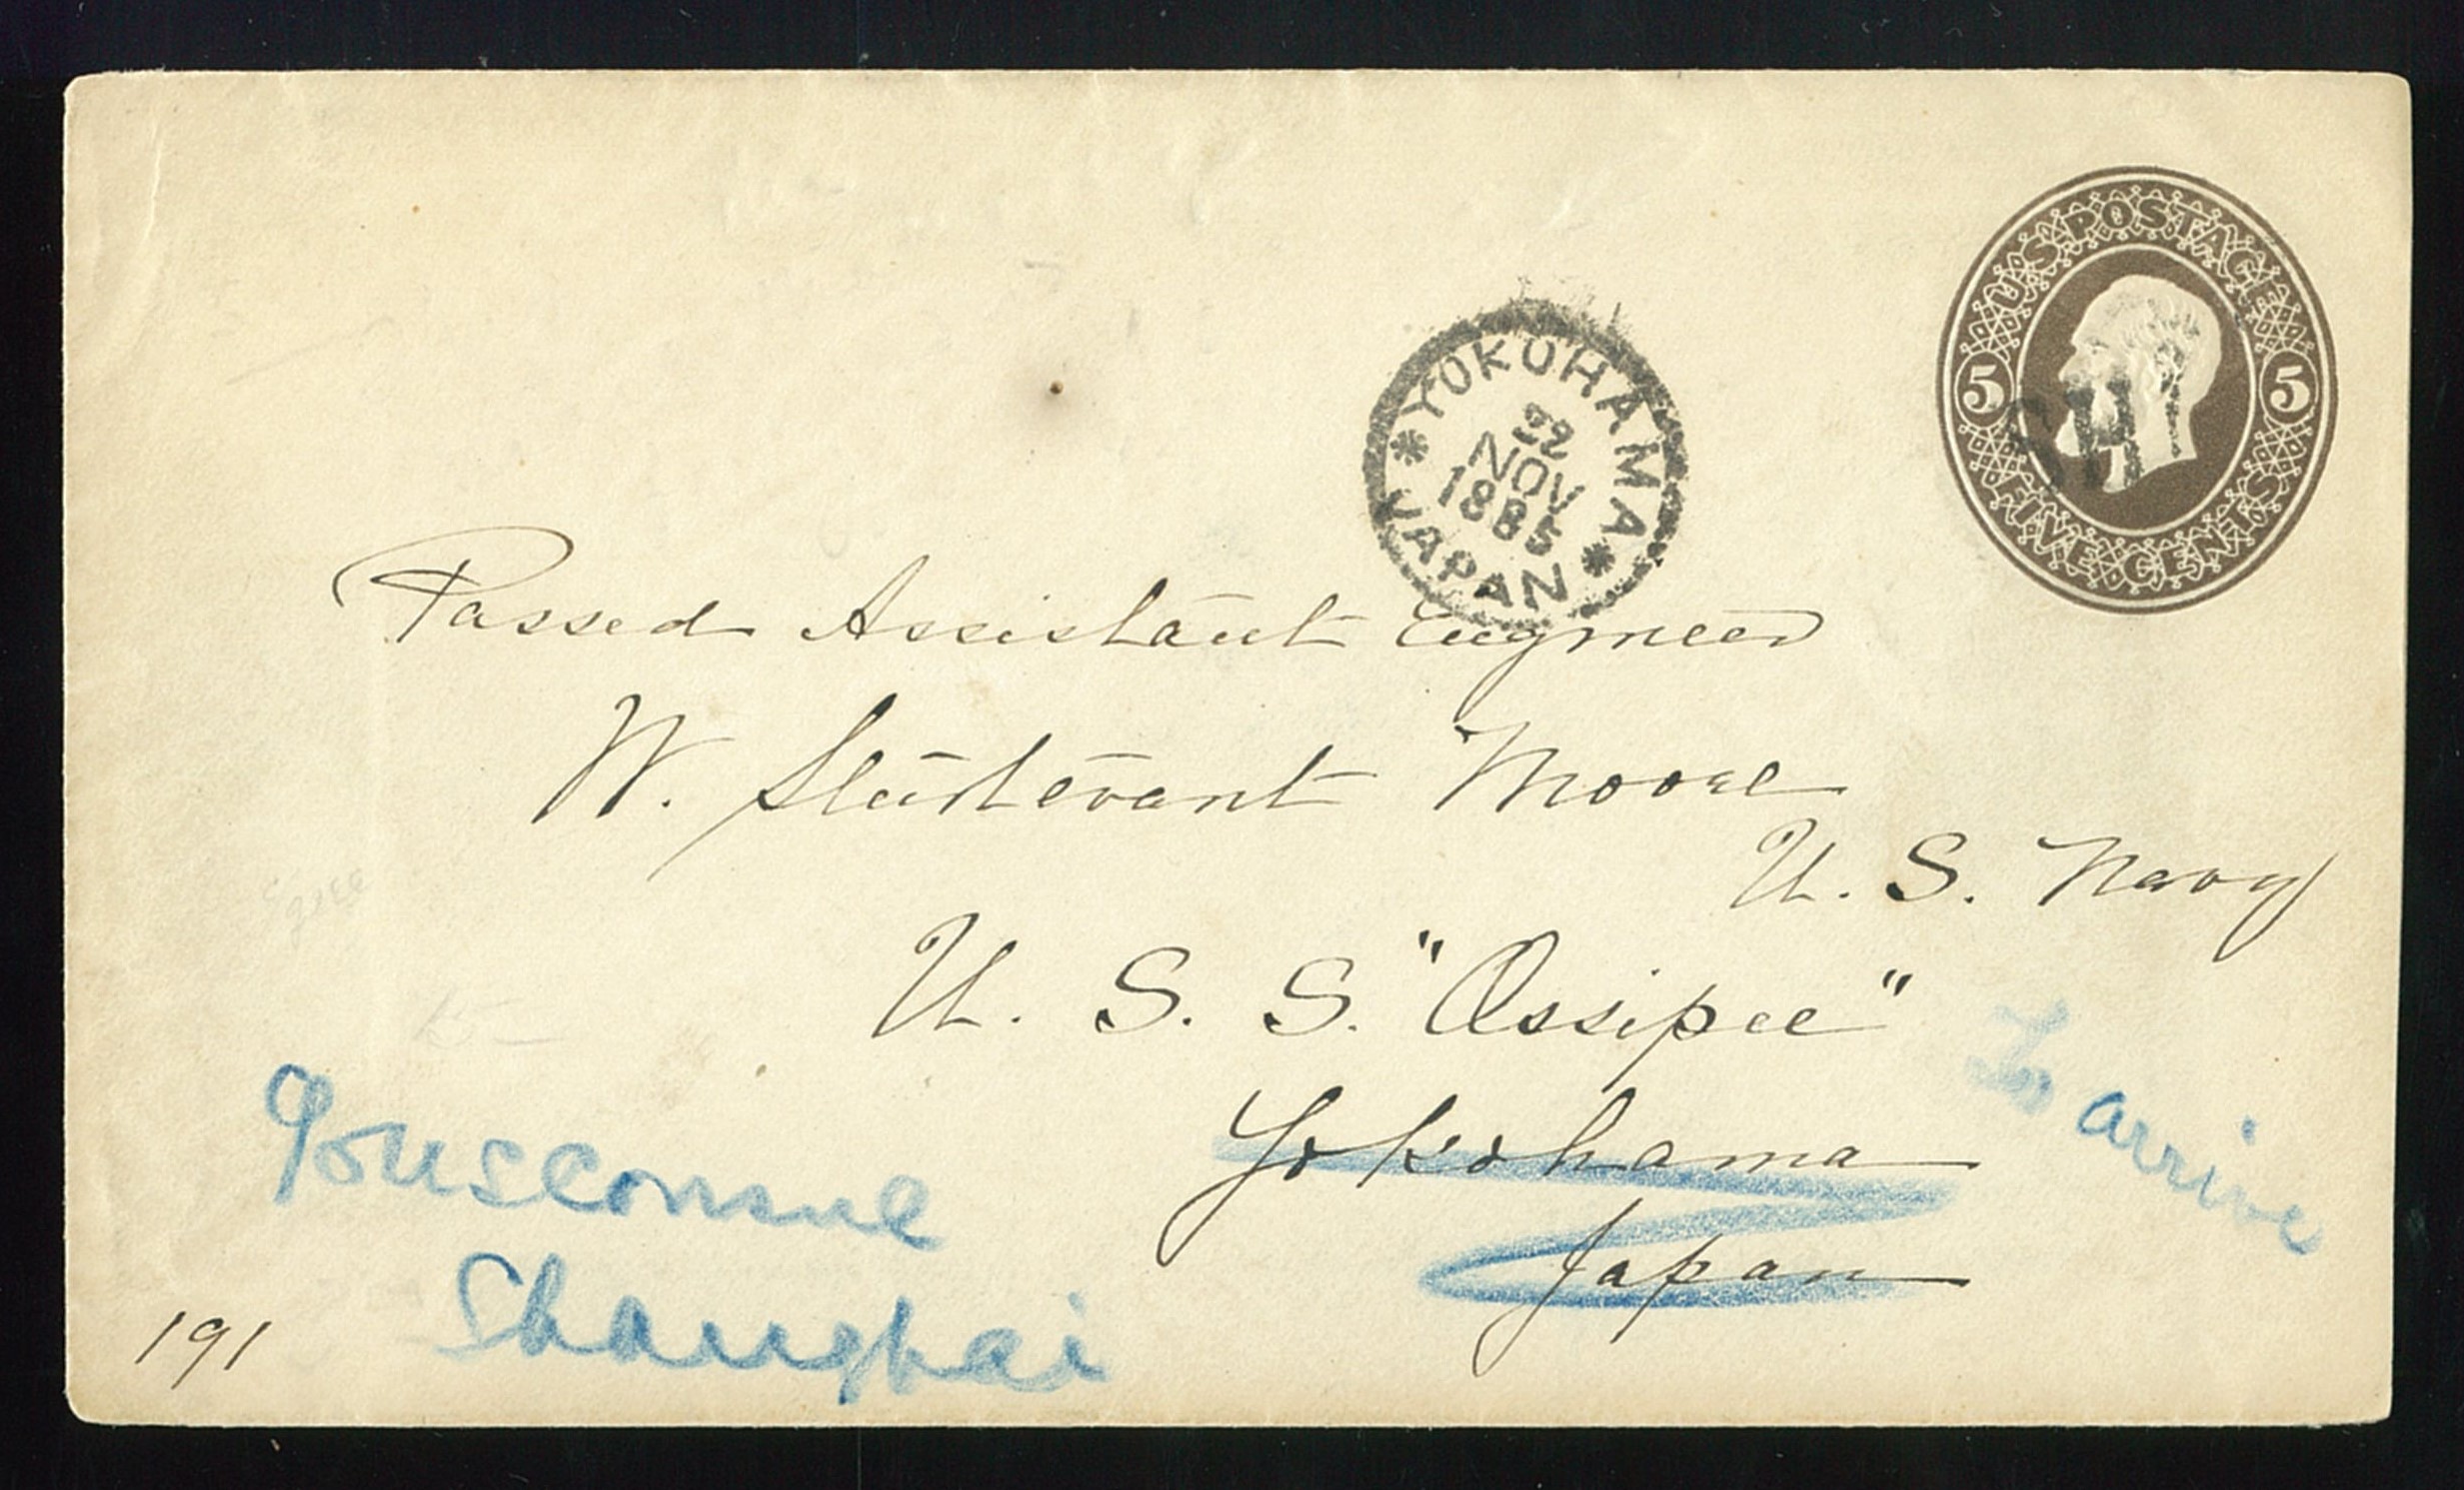 U.S. POSTAGE
5 5
FIVE CENTS
YOKOHAMA
22
NOV
1885
JAPAN
Passed Assistant Engineer
W. Sturtevant Moore
U. S. Navy
U. S. S. "Ossipee"
Yokohama
Japan
To arrive
Shanghai
191